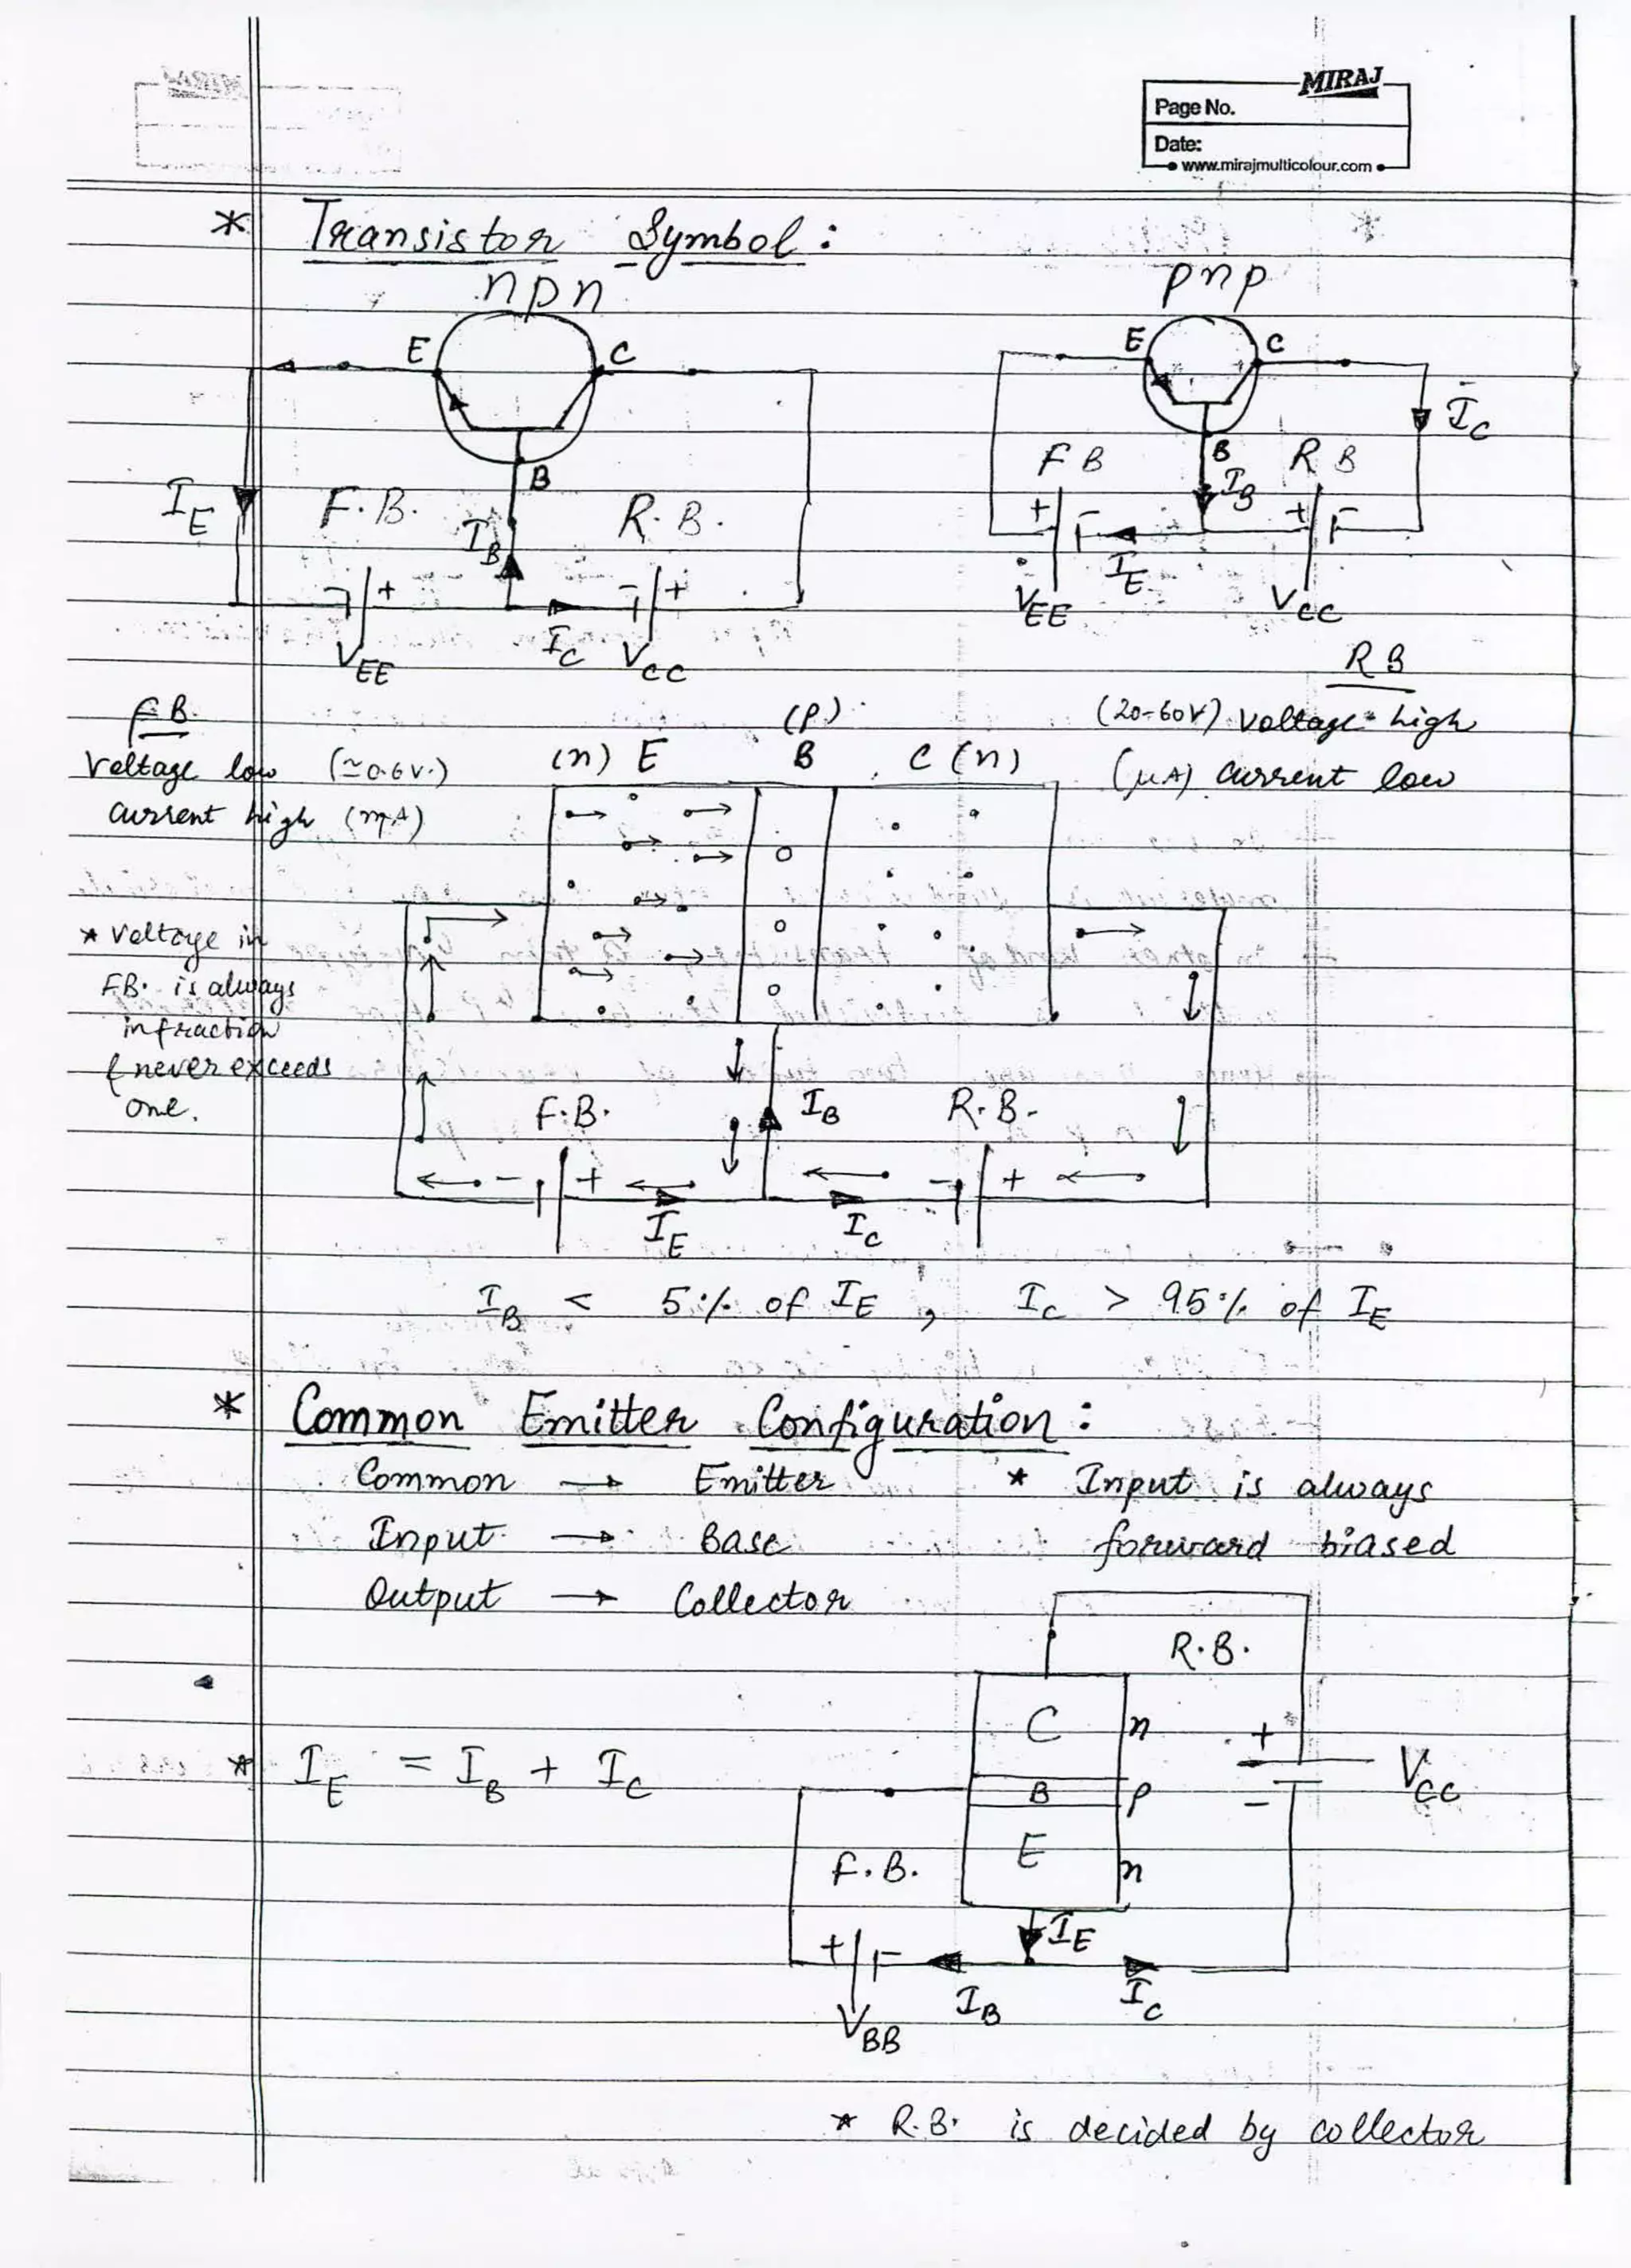 MIRAJ
Page No.
Date:
www.mirajmulticolour.com
* Transistor Symbol :
npn
pnp
E C
E C
B
B
I_E
F.B. I_B R.B.
F B I_B R B
I_C
+ +
+ +
V_EE I_C V_CC
V_EE I_E V_CC
F.B.
Voltage low (≃0.6V.)
current high (mA)
R B
(20-60V) voltage high
(μA) current low
(p)
(n) E B C (n)
* Voltage in
F.B. is always
in fraction
& never exceeds
one.
F.B. I_B R.B.
- + - +
I_E I_C
I_B < 5% of I_E , I_C > 95% of I_E
* Common Emitter Configuration :
Common → Emitter * Input is always
Input → Base forward biased
Output → Collector
R.B.
C n +
* I_E = I_B + I_C
B p - V_CC
F.B. E n
+ I_E
I_B I_C
V_BB
* R.B. is decided by collector